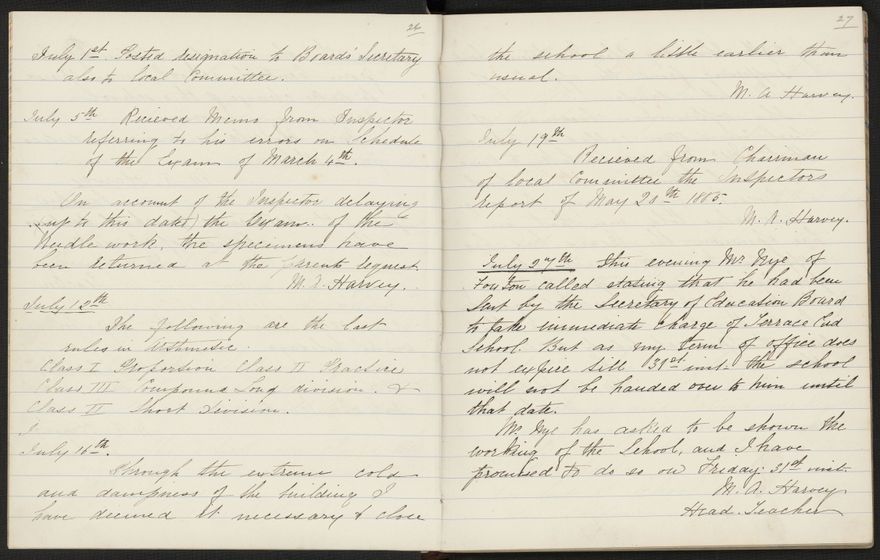 26
July 1st. Posted resignation to Boards' Secretary
also to local Committee.
July 5th Recieved Memo from Inspector
referring to his errors on Schedule
of the Exam of March 4th.
On account of the Inspector delaying
up to this date) the Exam. of the
Needle work, the specimens have
been returned at the parents request.
M. A. Harvey.
July 13th
The following are the last
rules in Arithmetic.
Class I Proportion Class II Practice
Class III Compound Long division. &
Class IV Short Division.
July 16th.
Through the extreme cold
and dampness of the building I
have deemed it necessary to close
27
the school a little earlier than
usual.
M. A Harvey.
July 19th
Recieved from Chairman
of local Committee the Inspectors
report of May 20th 1885.
M. A. Harvey.
July 27th This evening Mr Nye of
Foxton called stating that he had been
sent by the Secretary of Education Board
to take immediate charge of Terrace End
School. But as my term of office does
not expire till 31st inst. the school
will not be handed over to him until
that date.
Mr. Nye has asked to be shown the
working of the School, and I have
promised to do so on Friday. 31st inst.
M. A. Harvey
Head. Teacher